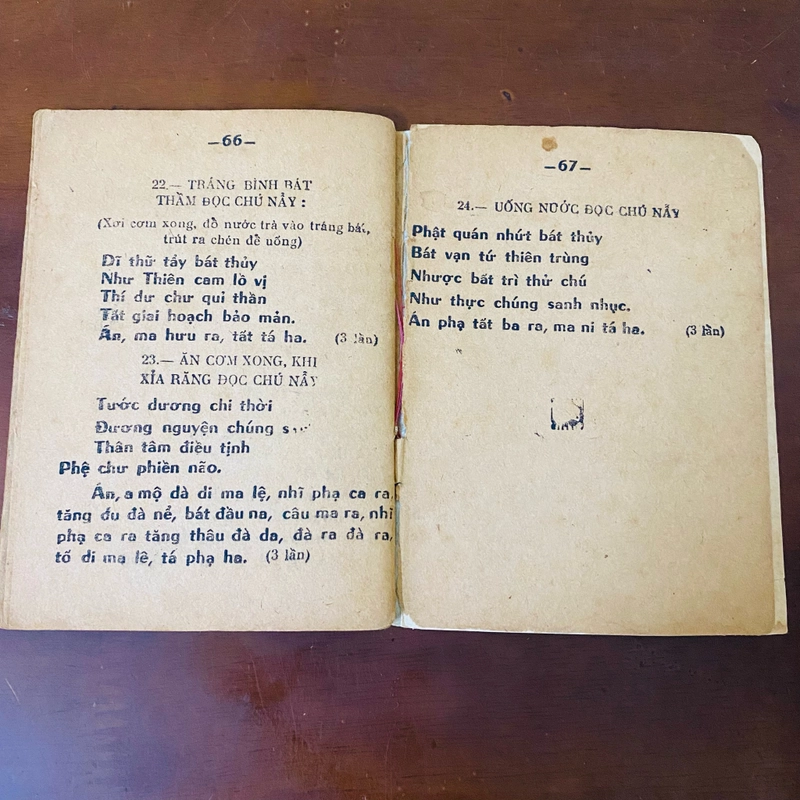 —66—
22.— TRÁNG BÌNH BÁT
THẦM ĐỌC CHÚ NẦY :
(Xơi cơm xong, đồ nước trà vào tráng bát,
trút ra chén để uống)
Dĩ thử tẩy bát thủy
Như Thiên cam lồ vị
Thí dư chư qui thần
Tất giai hoạch bảo mản.
Án, ma hưu ra, tất tá ha. (3 lần)
23.— ĂN CƠM XONG, KHI
XỈA RĂNG ĐỌC CHÚ NẦY
Tước dương chi thời
Đương nguyện chúng
Thân tâm điều tịnh
Phệ chư phiền não.
Án, a mộ dà di ma lệ, nhĩ phạ ca ra,
tăng đu đà nể, bát đầu na, câu ma ra, nhĩ
phạ ca ra tăng thâu đà da, đà ra đà ra,
tố di ma lê, tá phạ ha. (3 lần)
—67—
24.— UỐNG NƯỚC ĐỌC CHÚ NẦY
Phật quán nhứt bát thủy
Bát vạn tứ thiên trùng
Nhược bất trì thử chú
Như thực chúng sanh nhục.
Án phạ tất ba ra, ma ni tá ha. (3 lần)